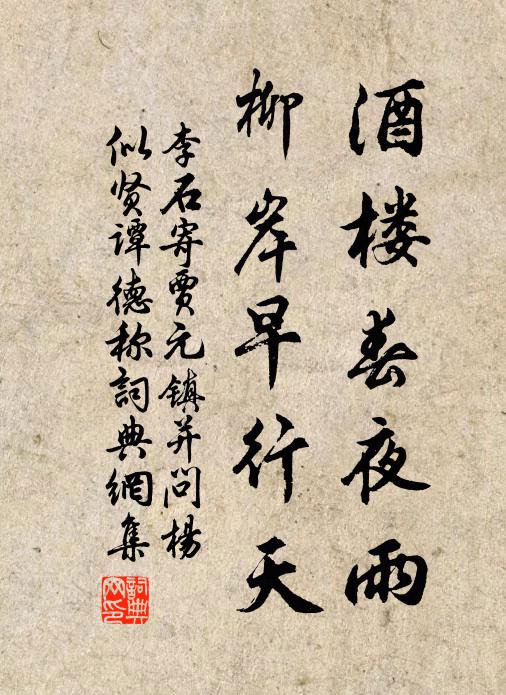 酒楼春夜雨
柳岸早行天
李石寄贾元镇并问杨
似贤谭德称詞典網集
詞典